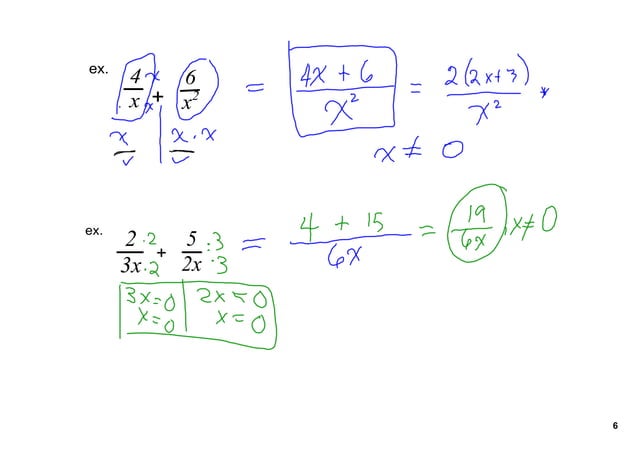 ex. 4/x · x/x + 6/x² = (4x + 6)/x² = 2(2x+3)/x² *
x | x · x
x ≠ 0
ex. 2·2/3x·2 + 5·3/2x·3 = (4 + 15)/6x = 19/6x, x≠0
3x=0 | 2x=0
x=0 | x=0
6